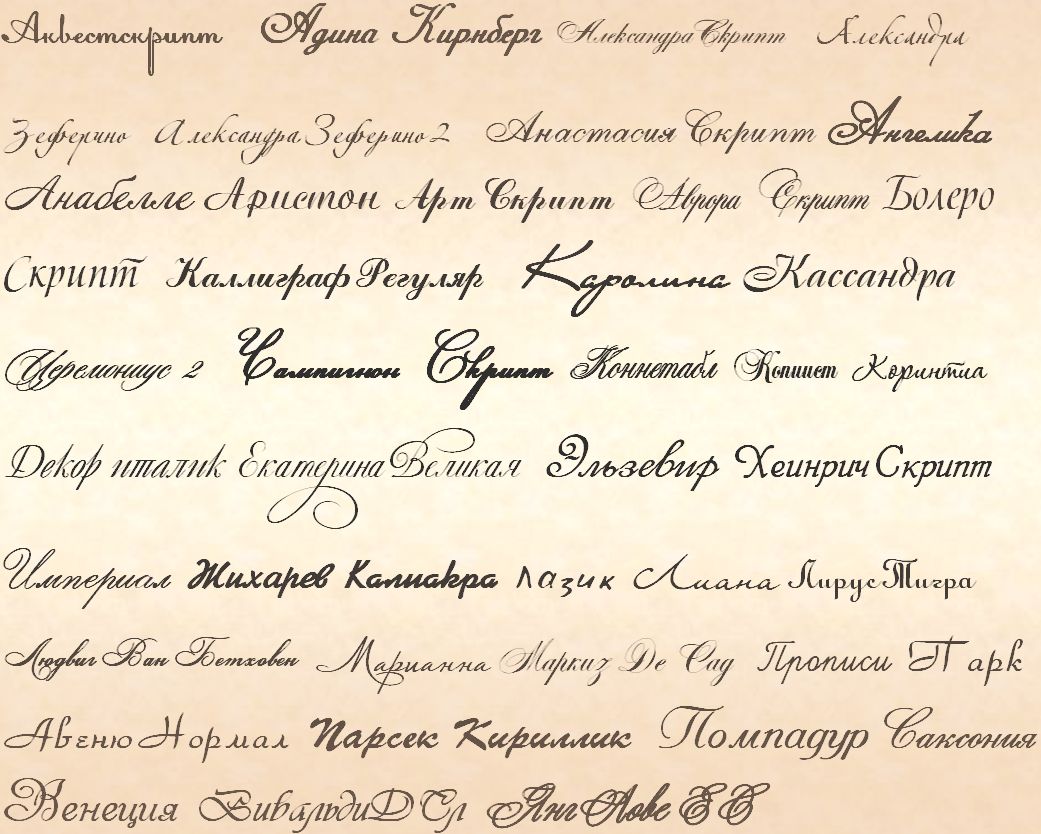 Аквестскрипт Адина Кирнберг Александра Скрипт Александра
Зеферино Александра Зеферино 2 Анастасия Скрипт Ангелика
Анабелле Аристон Арт Скрипт Аврора Скрипт Болеро
Скрипт Каллиграф Регуляр Каролина Кассандра
Церемониус 2 Чампигнон Скрипт Коннетабл Копиист Коринтиа
Декор италик Екатерина Великая Эльзевир Хеинрич Скрипт
Империал Жихарев Калиакра Лазик Лиана Лирус Тигра
Людвиг Ван Бетховен Марианна Маркиз Де Сад Прописи Парк
Авеню Нормал Парсек Кириллик Помпадур Саксония
Венеция ВивальдиД Сл Янг Лове ЕС